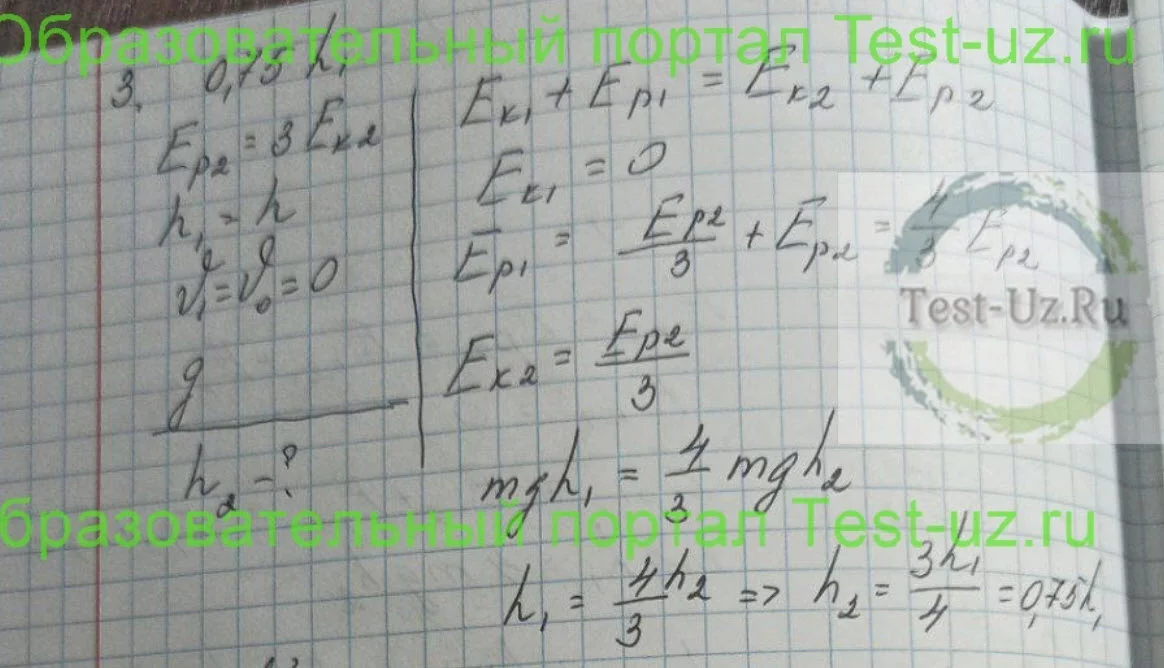 Образовательный портал Test-uz.ru
3. 0,75 h₁
E_p2 = 3 E_k2
h₁ = h
υ₁ = υ₀ = 0
g
h₂ - ?
E_k1 + E_p1 = E_k2 + E_p2
E_k1 = 0
E_p1 = E_p2/3 + E_p2 = 4/3 E_p2
Test-Uz.Ru
E_k2 = E_p2/3
mgh₁ = 4/3 mgh₂
бразовательный портал Test-uz.ru
h₁ = 4h₂/3 => h₂ = 3h₁/4 = 0,75h₁